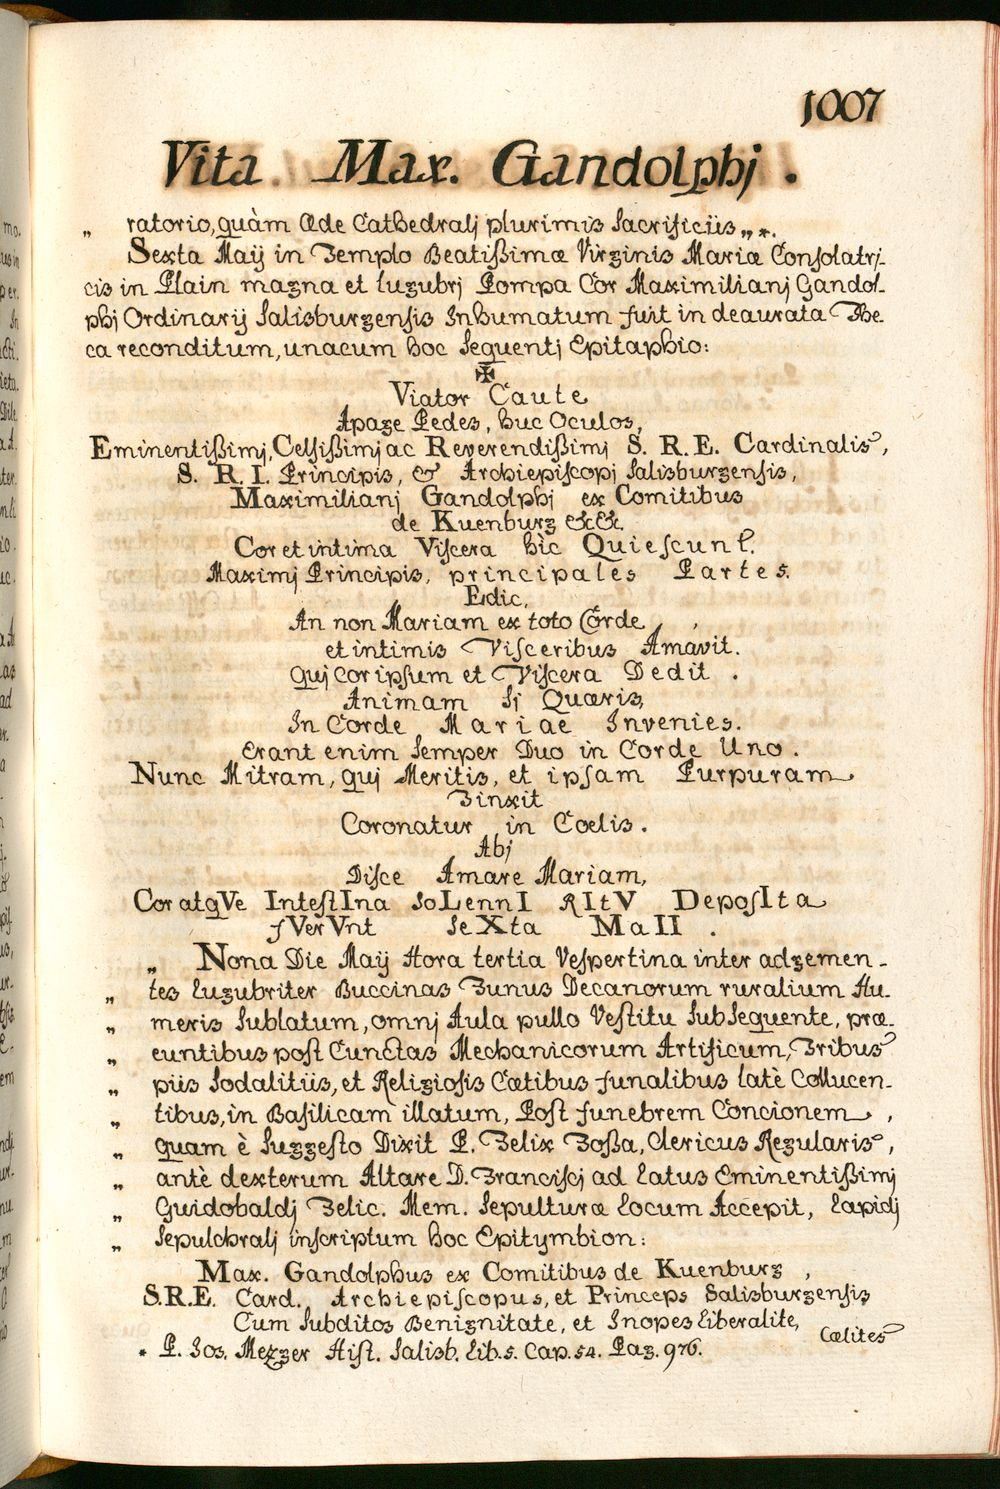 1007
Vita Max. Gandolphj.
„ ratorio, quàm Æde Cathedralj plurimis Sacrificiis„ *.
Sexta Maÿ in Templo Beatißimæ Virginis Mariæ Consolatrj-
cis in Plain magna et lugubrj Pompa Cor Maximilianj Gandol-
phj Ordinarÿ Salisburgensis Inhumatum fuit in deaurata The-
ca reconditum, unacum hoc Sequentj Epitaphio:
✠
Viator Caute
Apage Pedes, huc Oculos,
Eminentißimj, Celsißimj ac Reverendißimj S. R. E. Cardinalis,
S. R. I. Principis, & Archiepiscopj Salisburgensis,
Maximilianj Gandolphj ex Comitibus
de Kuenburg &c&c.
Cor et intima Viscera hìc Quiescunt.
Maximj Principis, principales Partes.
Edic,
An non Mariam ex toto Corde,
et intimis Visceribus Amavit.
Quj Cor ipsum et Viscera Dedit.
Animam Sj Quæris,
In Corde Mariae Invenies.
Erant enim Semper Duo in Corde Uno.
Nunc Mitram, quj Meritis, et ipsam Purpuram
Tinxit
Coronatur in Cœlis.
Abj
Disce Amare Mariam,
Cor atqVe IntestIna SoLennI RItV DeposIta
fVerVnt SeXta MaII.
„ Nona Die Maÿ Hora tertia Vespertina inter adgemen-
„ tes Lugubriter Buccinas Funus Decanorum ruralium Hu-
„ meris Sublatum, omnj Aula pullo Vestitu Subsequente, præ-
„ euntibus post Cunctas Mechanicorum Artificum, Tribus
„ piis Sodalitiis, et Religiosis Cœtibus funalibus latè Collucen-
„ tibus, in Basilicam illatum, Post funebrem Concionem,
„ quam è Suggesto Dixit P. Felix Foßa, Clericus Regularis,
„ antè dexterum Altare D. Franciscj ad Latus Eminentißimj
„ Guidobaldj Felic. Mem. Sepulturæ Locum Accepit, Lapidj
„ Sepulchralj inscriptum hoc Epitymbion:
Max. Gandolphus ex Comitibus de Kuenburg,
S.R.E. Card. Archiepiscopus, et Princeps Salisburgensis
Cum Subditos Benignitate, et Inopes Liberalite,
Cœlites
* P. Jos. Mezger Hist. Salisb. Lib. 5. Cap. 54. Pag. 976.